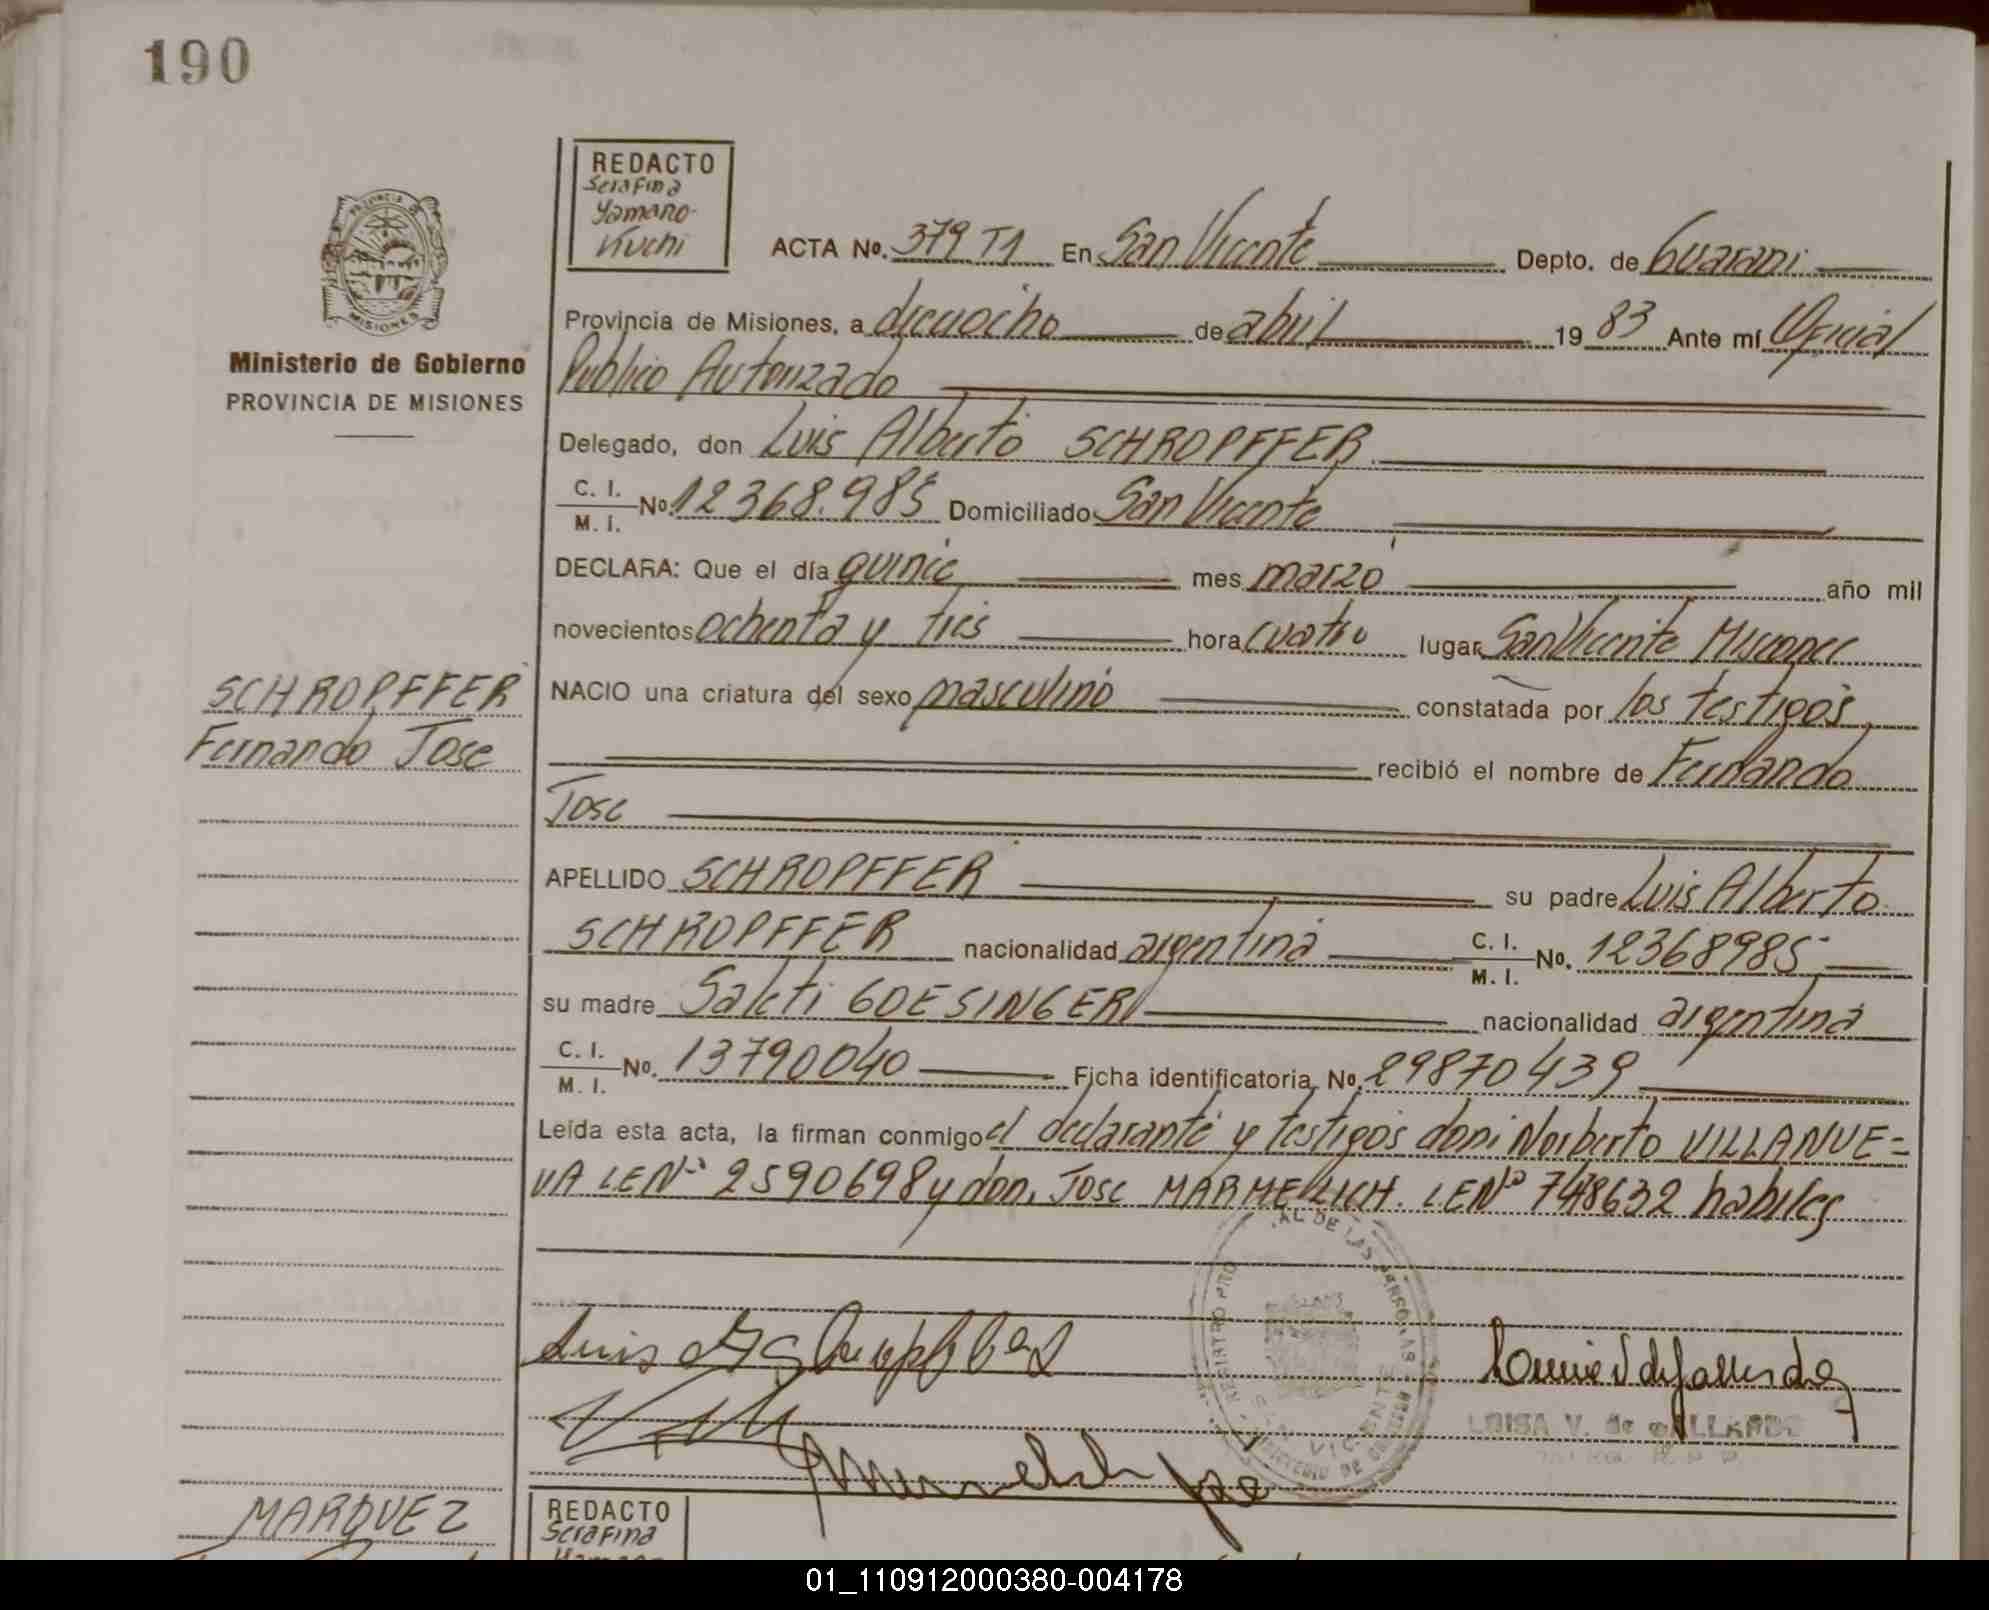 190
REDACTO
Serafina
Yamano-
Kiuchi
PROVINCIA DE
MISIONES
Ministerio de Gobierno
PROVINCIA DE MISIONES
ACTA No. 379 T1 En San Vicente Depto. de Guarani
Provincia de Misiones, a dieciocho de abril 19 83 Ante mí Oficial
Publico Autorizado
Delegado, don Luis Alberto SCHROPFFER
C. I. M. I. No. 12368.985 Domiciliado San Vicente
DECLARA: Que el día quince mes marzo año mil
novecientos ochenta y tres hora cuatro lugar San Vicente Misiones
NACIO una criatura del sexo masculino constatada por los testigos
recibió el nombre de Fernando
Jose
SCHROPFFER
Fernando Jose
APELLIDO SCHROPFFER su padre Luis Alberto
SCHROPFFER nacionalidad argentina C. I. M. I. No. 12368985
su madre Saleti GOESINGER nacionalidad argentina
C. I. M. I. No. 13790040 Ficha identificatoria No. 29870439
Leída esta acta, la firman conmigo el declarante y testigos don: Norberto VILLANUE=
VA LENº 2590698 y don, Jose MARMELICH. LENº 748632 habiles
REGISTRO AL DE LAS PERSONAS
SAN VICENTE
LUISA V. de GALLARDO
MARQUEZ
REDACTO
Serafina
01_110912000380-004178